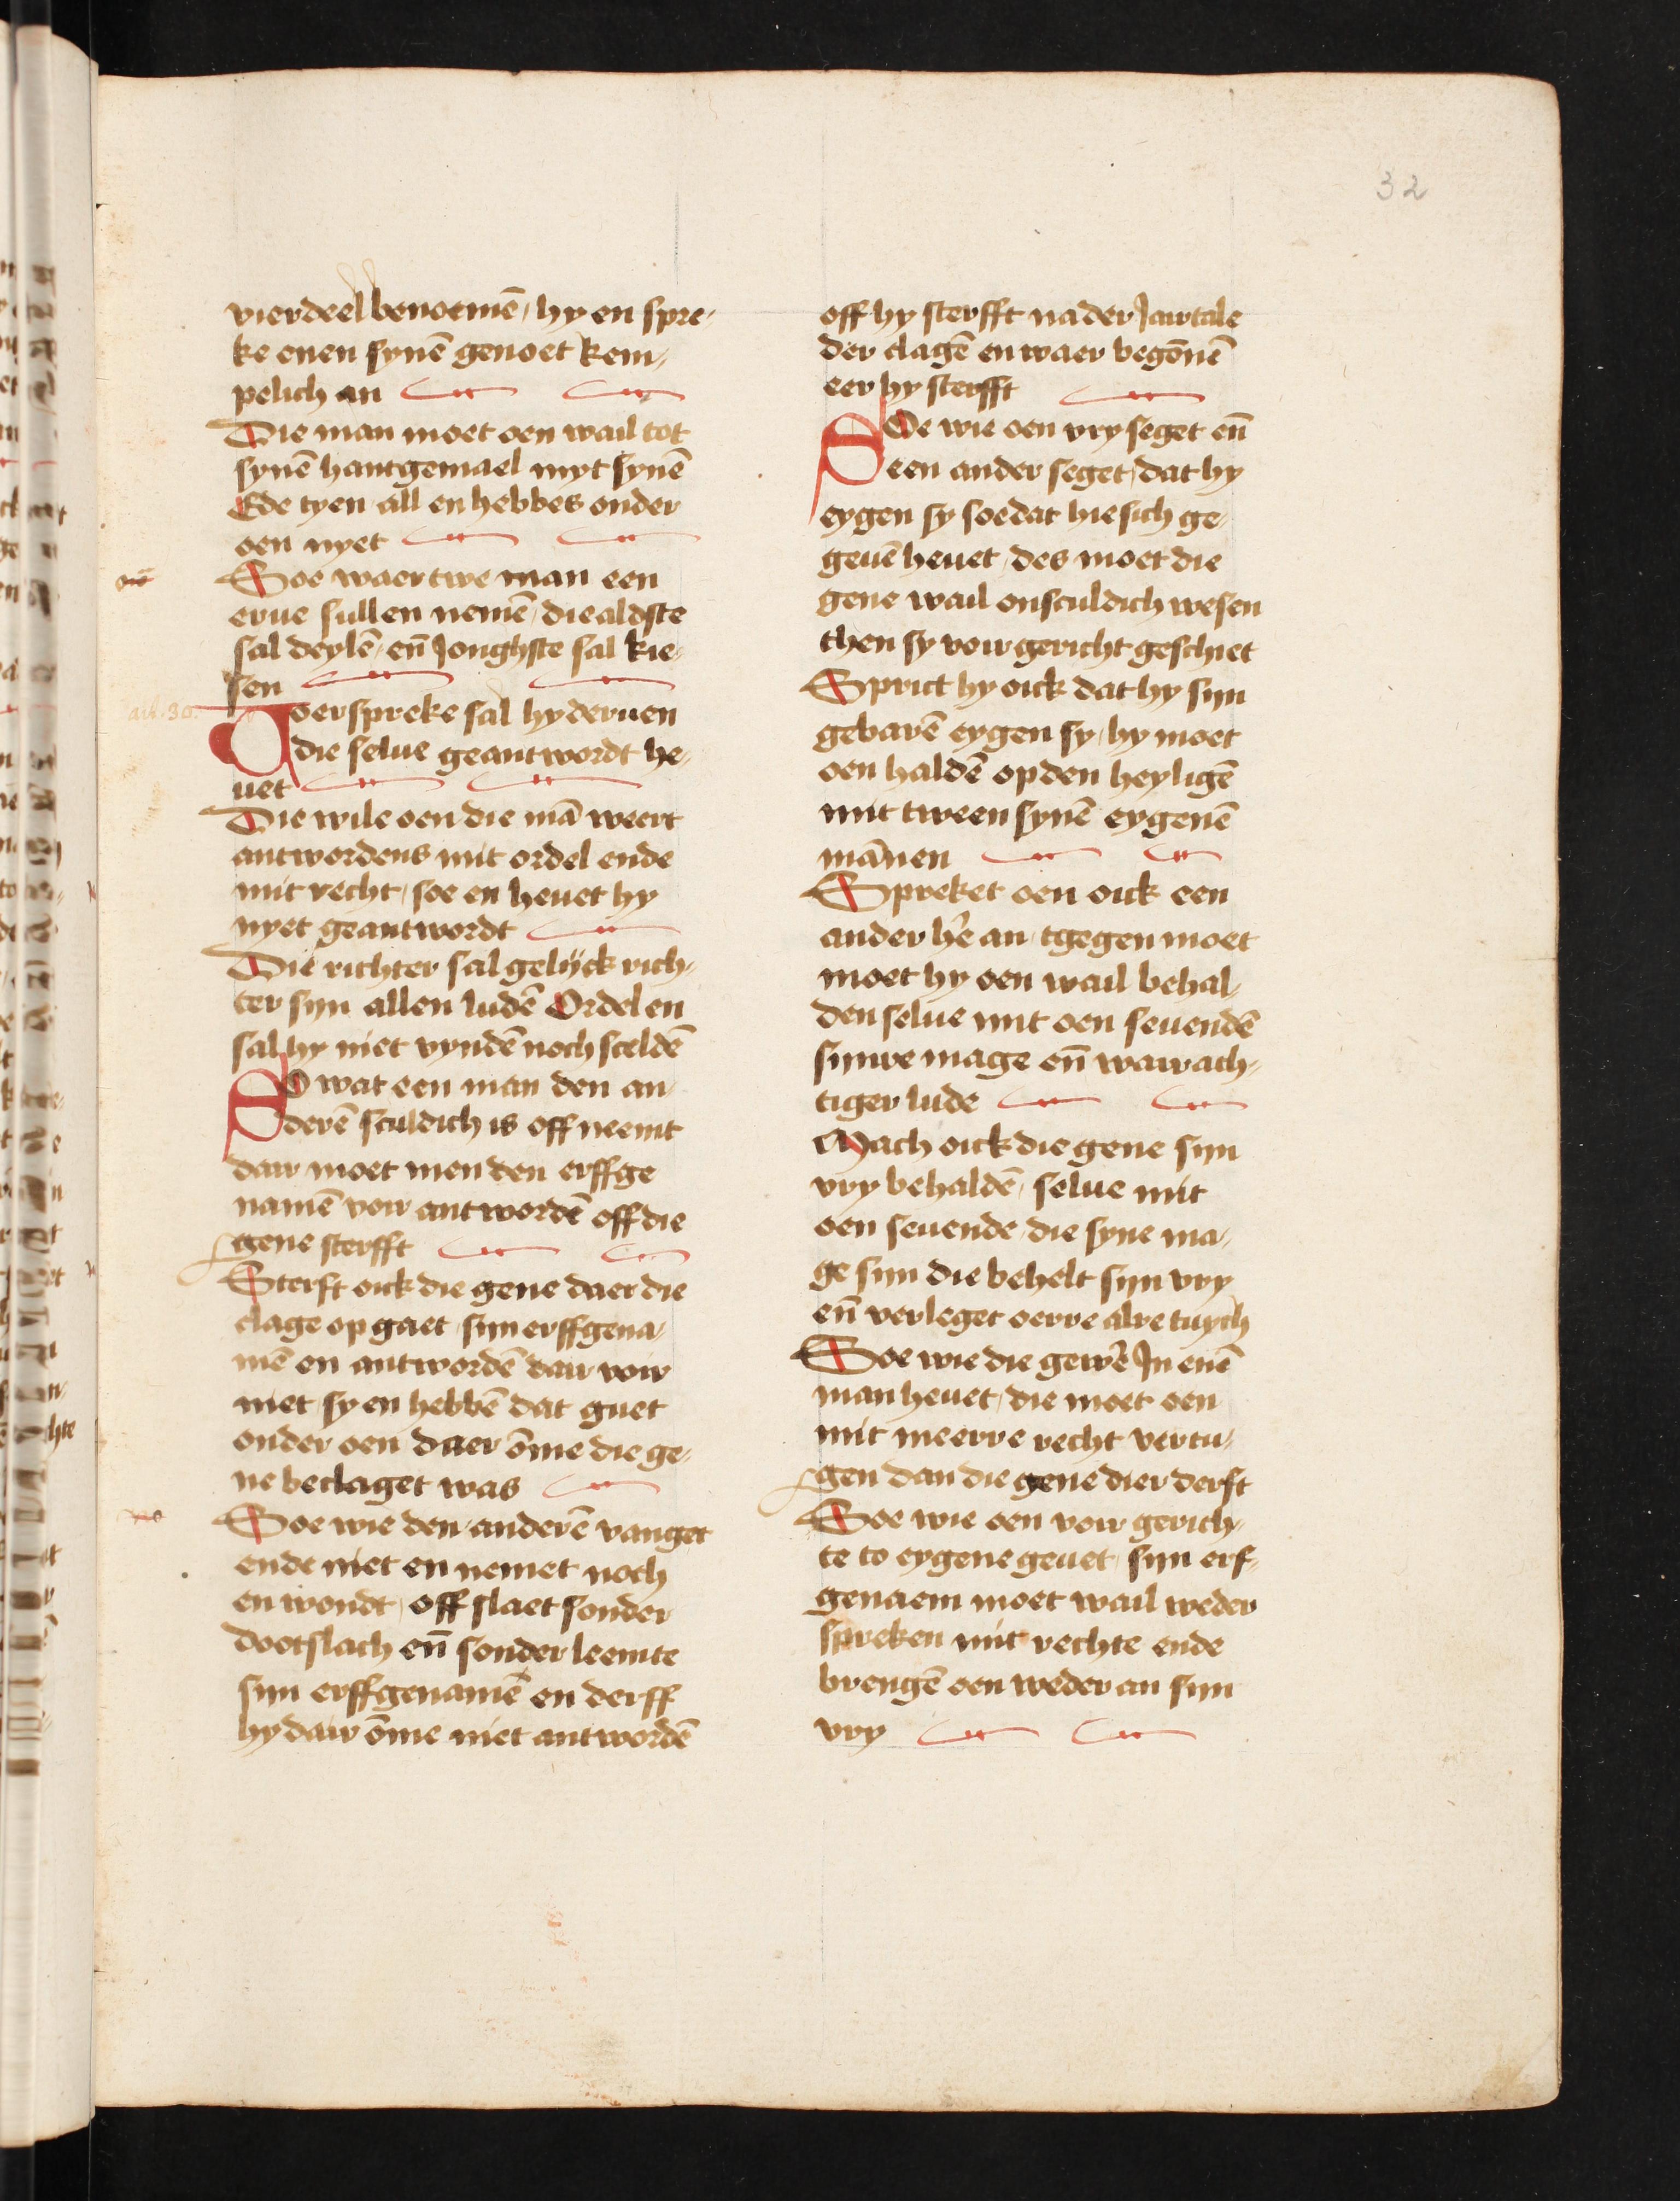 32
vierdeel benoemē / hy en spre-
ke enen synē genoet kem-
pelich an
Die man moet oen wail tot
synē hantgemael myt synē
Ede tyen all en hebbes onder
oen nyet
Soe waer twe man een
erue sullen nemē / die aldste
sal deylē / en̄ Jonghste sal kie-
sen
Voerspreke sal hy deruen
die selue geantwordt he-
uet
Die wile oen die mā weert
antwordens mit ordel ende
mit recht / soe en heuet hy
nyet geantwordt
Die richter sal gelijck rich-
ter sijn allen ludē Ordel en
sal hy niet vyndē noch sceldē
SO wat een man den an-
derē sculdich is off neemt
dair moet men den erffge
namē voir antwordē off die
gene sterfft
Sterft oick die gene daer die
clage op gaet / sijn erffgena-
mē en antwordē dair voir
niet / sy en hebbē dat guet
onder oen daer ōme die ge-
ne beclaget was
Soe wie den anderē vanget
ende niet en nemet noch
en wondt / off slaet sonder
dootslach en̄ sonder leemte
sijn erffgenamē en derff
hy dair ōme niet antwordē
off hy sterfft na der Jairtale
der clagē en waer begōnē
eer hy sterfft
SOe wie oen vry seget en̄
een ander seget / dat hy
eygen sy soe dat hie sich ge-
geuē heuet / des moet die
gene wail onsculdich wesen
then sy voir gericht geschiet
Sprict hy oick dat hy sijn
gebarē eygen sy / hy moet
oen haldē op den heyligē
mit tween synē eygenē
mānen
Spreket oen oick een
ander hē an / tgegen moet
moet hy oen wail behal-
den selue mit oen seuendē
sijnre mage en̄ wairach-
tiger lude
Mach oick die gene sijn
vry behaldē / selue mit
oen seuende / die syne ma-
ge sijn die behelt sijn vry
en̄ verleget oerre alre tuych
Soe wie die gewē Jn enē
man heuet / die moet oen
mit meerre recht vertu-
gen dan die gene dier derft
Soe wie oen voir gerich-
te to eygene geuet / sijn erf-
genaem moet wail weder
spreken mit rechte ende
brengē oen weder an sijn
vry